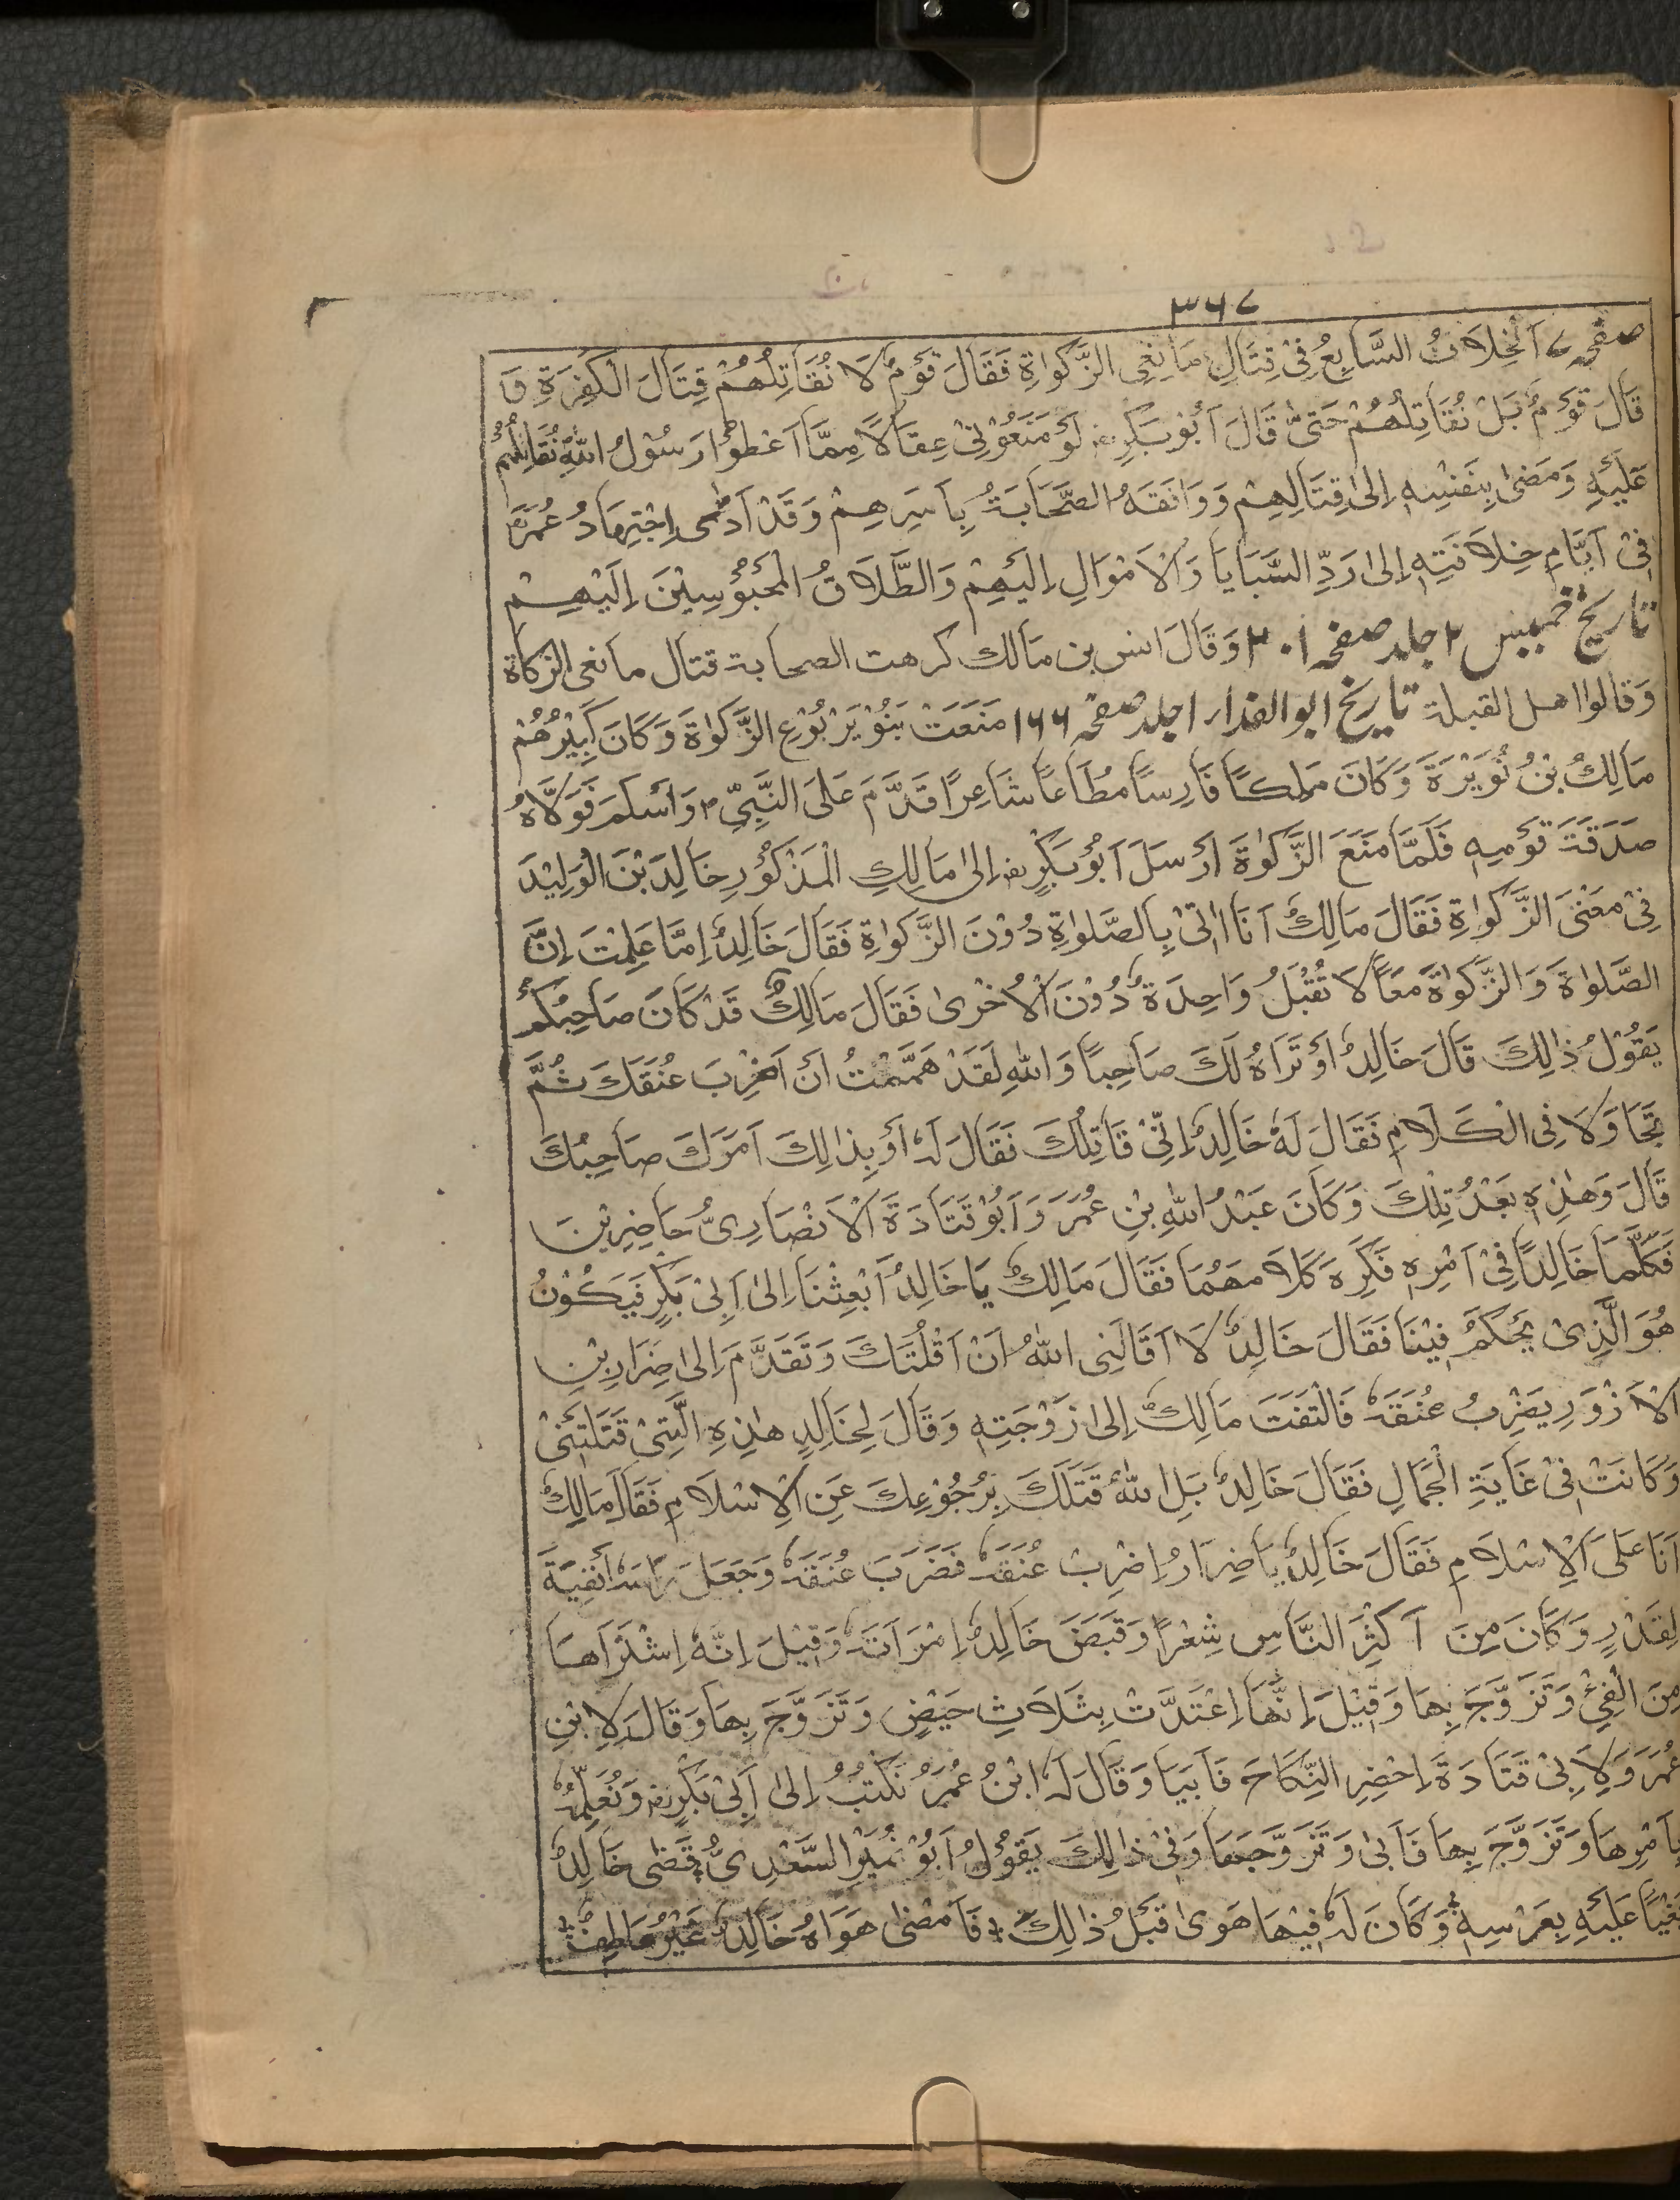 ۳۶۷
صفحہ ۷ اَلْخِلَافُ السَّابِعُ فِيْ قِتَالِ مَانِعِي الزَّكٰوةِ فَقَالَ قَوْمٌ لَا نُقَاتِلُهُمْ قِتَالَ الْكَفَرَةِ وَ
قَالَ قَوْمٌ بَلْ نُقَاتِلُهُمْ حَتّٰى قَالَ اَبُوْبَكْرٍ لَوْ مَنَعُوْنِيْ عِقَالًا مِمَّا اَعْطَوْا رَسُوْلَ اللهِ نُقَاتِلُهُمْ
عَلَيْهِ وَمَضٰى بِنَفْسِهٖ اِلٰى قِتَالِهِمْ وَوَافَقَهُ الصَّحَابَةُ بِاَسَرِهِمْ وَقَدْ اَدّٰى اِجْتِهَادُ عُمَرَ
فِيْ اَيَّامِ خِلَافَتِهٖ اِلٰى رَدِّ السَّبَايَا وَالْاَمْوَالِ اِلَيْهِمْ وَالطَّلَاقُ الْمَحْبُوْسِيْنَ اِلَيْهِمْ
تاریخ خمیس ۲ جلد صفحہ ۲۰۱ وَقَالَ انس بن مَالك كرهت الصحابة قتال مانعى الزكاة
وَقالوا اهل القبلة تاریخ ابو الفداء ۱ جلد صفحہ ۱۶۶ مَنَعَتْ بَنُوْ يَرْبُوْعِ الزَّكٰوةَ وَكَانَ كَبِيْرُهُمْ
مَالِكُ بْنُ نُوَيْرَةَ وَكَانَ مَلِكًا فَارِسًا مُطَاعًا شَاعِرًا قَدَّمَ عَلَى النَّبِيِّ ۳ وَاَسْلَمَ فَوَلَّاهُ
صَدَقَةَ قَوْمِهٖ فَلَمَّا مَنَعَ الزَّكٰوةَ اَرْسَلَ اَبُوْبَكْرٍ اِلٰى مَالِكِ الْمَذْكُوْرِ خَالِدَ بْنَ الْوَلِيْدَ
فِيْ مَعْنَى الزَّكٰوةِ فَقَالَ مَالِكٌ اَنَا اٰتِيْ بِالصَّلٰوةِ دُوْنَ الزَّكٰوةِ فَقَالَ خَالِدٌ اِمَّا عَلِمْتَ اِنَّ
الصَّلٰوةَ وَالزَّكٰوةَ مَعًا لَا تُقْبَلُ وَاحِدَةٌ دُوْنَ الْاُخْرٰى فَقَالَ مَالِكٌ قَدْ كَانَ صَاحِبُكُمْ
يَقُوْلُ ذٰلِكَ قَالَ خَالِدٌ اَوْ تَرَاهُ لَكَ صَاحِبًا وَاللهِ لَقَدْ هَمَمْتُ اَنْ اَضْرِبَ عُنَقَكَ ثُمَّ
تَجَاوَلَا فِى الْكَلَامِ فَقَالَ لَهٗ خَالِدٌ اِنِّيْ قَاتِلُكَ فَقَالَ لَهٗ اَوْ بِذٰلِكَ اَمَرَكَ صَاحِبُكَ
قَالَ وَهٰذِهٖ بَعْدَ تِلْكَ وَكَانَ عَبْدُ اللهِ بْنِ عُمَرَ وَاَبُوْ قَتَادَةَ الْاَنْصَارِىُّ حَاضِرِيْنَ
فَكَلَّمَا خَالِدًا فِيْ اَمْرِهٖ فَكَرِهَ كَلَامَهُمَا فَقَالَ مَالِكٌ يَا خَالِدُ اَبْعِثْنَا اِلٰى اَبِيْ بَكْرٍ فَيَكُوْنُ
هُوَ الَّذِىْ يَحْكَمُ فِيْنَا فَقَالَ خَالِدٌ لَا اَقَالَنِى اللهُ اَنْ اَقْلُتَكَ وَتَقَدَّمَ اِلٰى ضِرَارِ بْنِ
الْاَزْوَرِ يَضْرِبُ عُنَقَهٗ فَالْتَفَتَ مَالِكٌ اِلٰى زَوْجَتِهٖ وَقَالَ لِخَالِدٍ هٰذِهِ الَّتِيْ قَتَلَتْنِىْ
وَكَانَتْ فِيْ غَايَةِ الْجَمَالِ فَقَالَ خَالِدٌ بَلِ اللهُ قَتَلَكَ بِرُجُوْعِكَ عَنِ الْاِسْلَامِ فَقَالَ مَالِكٌ
اَنَا عَلَى الْاِسْلَامِ فَقَالَ خَالِدٌ يَا ضِرَارُ اِضْرِبْ عُنَقَهٗ فَضَرَبَ عُنَقَهٗ وَجَعَلَ رَاسَهٗ اُثْفِيَةَ
لِقَدْرٍ وَكَانَ مِنَ اَكْثَرِ النَّاسِ شِعْرًا وَقَبَضَ خَالِدٌ اِمْرَاَتَهٗ وَقِيْلَ اِنَّهٗ اِشْتَرَاهَا
مِنَ الْفَيْ وَتَزَوَّجَ بِهَا وَقِيْلَ اِنَّهَا اِعْتَدَّتْ بِثَلَاثِ حَيْضٍ وَتَزَوَّجَ بِهَا وَقَالَ لِابْنِ
عُمَرَ وَلِاَبِىْ قَتَادَةَ اِحْضِرِ النِّكَاحَ فَاَبَيَا وَقَالَ لَهٗ ابْنُ عُمَرُ نَكْتُبُ اِلٰى اَبِيْ بَكْرٍ وَنُعَلِّمُهٗ
بِاَمْرِهَا وَتَزَوَّجَ بِهَا فَاَبٰى وَتَزَوَّجَهَا وَفِيْ ذٰلِكَ يَقُوْلُ اَبُوْ نُمَيْرِ السَّعْدِىُّ قَضٰى خَالِدٌ
بَغْيًا عَلَيْهِ بِعَرْسِهٖ وَكَانَ لَهٗ فِيْهَا هَوٰى قَبْلُ ذٰلِكَ فَاَمْضٰى هَوَاهُ خَالِدٌ غَيْرُ عَاطِفٌ